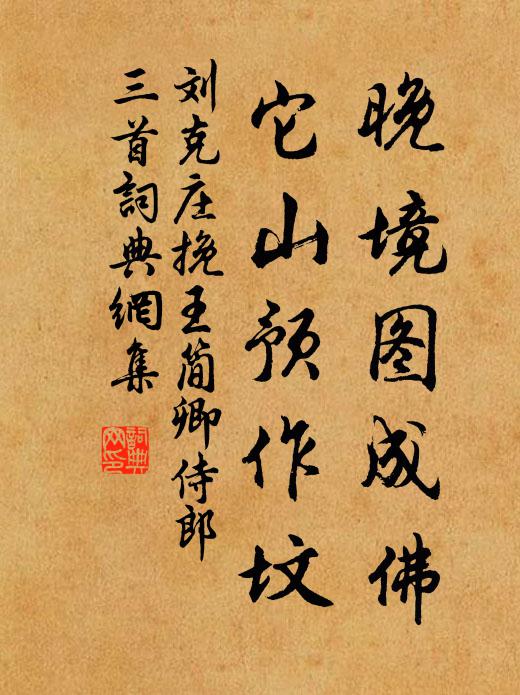 晚境图成佛
它山预作坟
刘克庄挽王简卿侍郎
三首詞典網集
詞典
网印